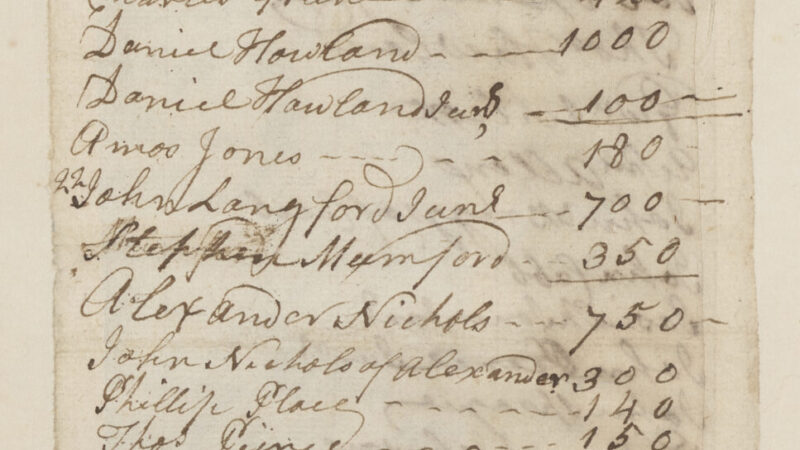 Daniel Howland - - - 1000
Daniel Howland Junr - 100 -
Amos Jones - - - - - - 180 -
22 John Langford Junr - 700 -
Stephen Mumford - 350
Alexander Nichols - - - 750 -
John Nichols of Alexander 300
Phillip Place - - - - - - 140
Thos Peirce - - - 150